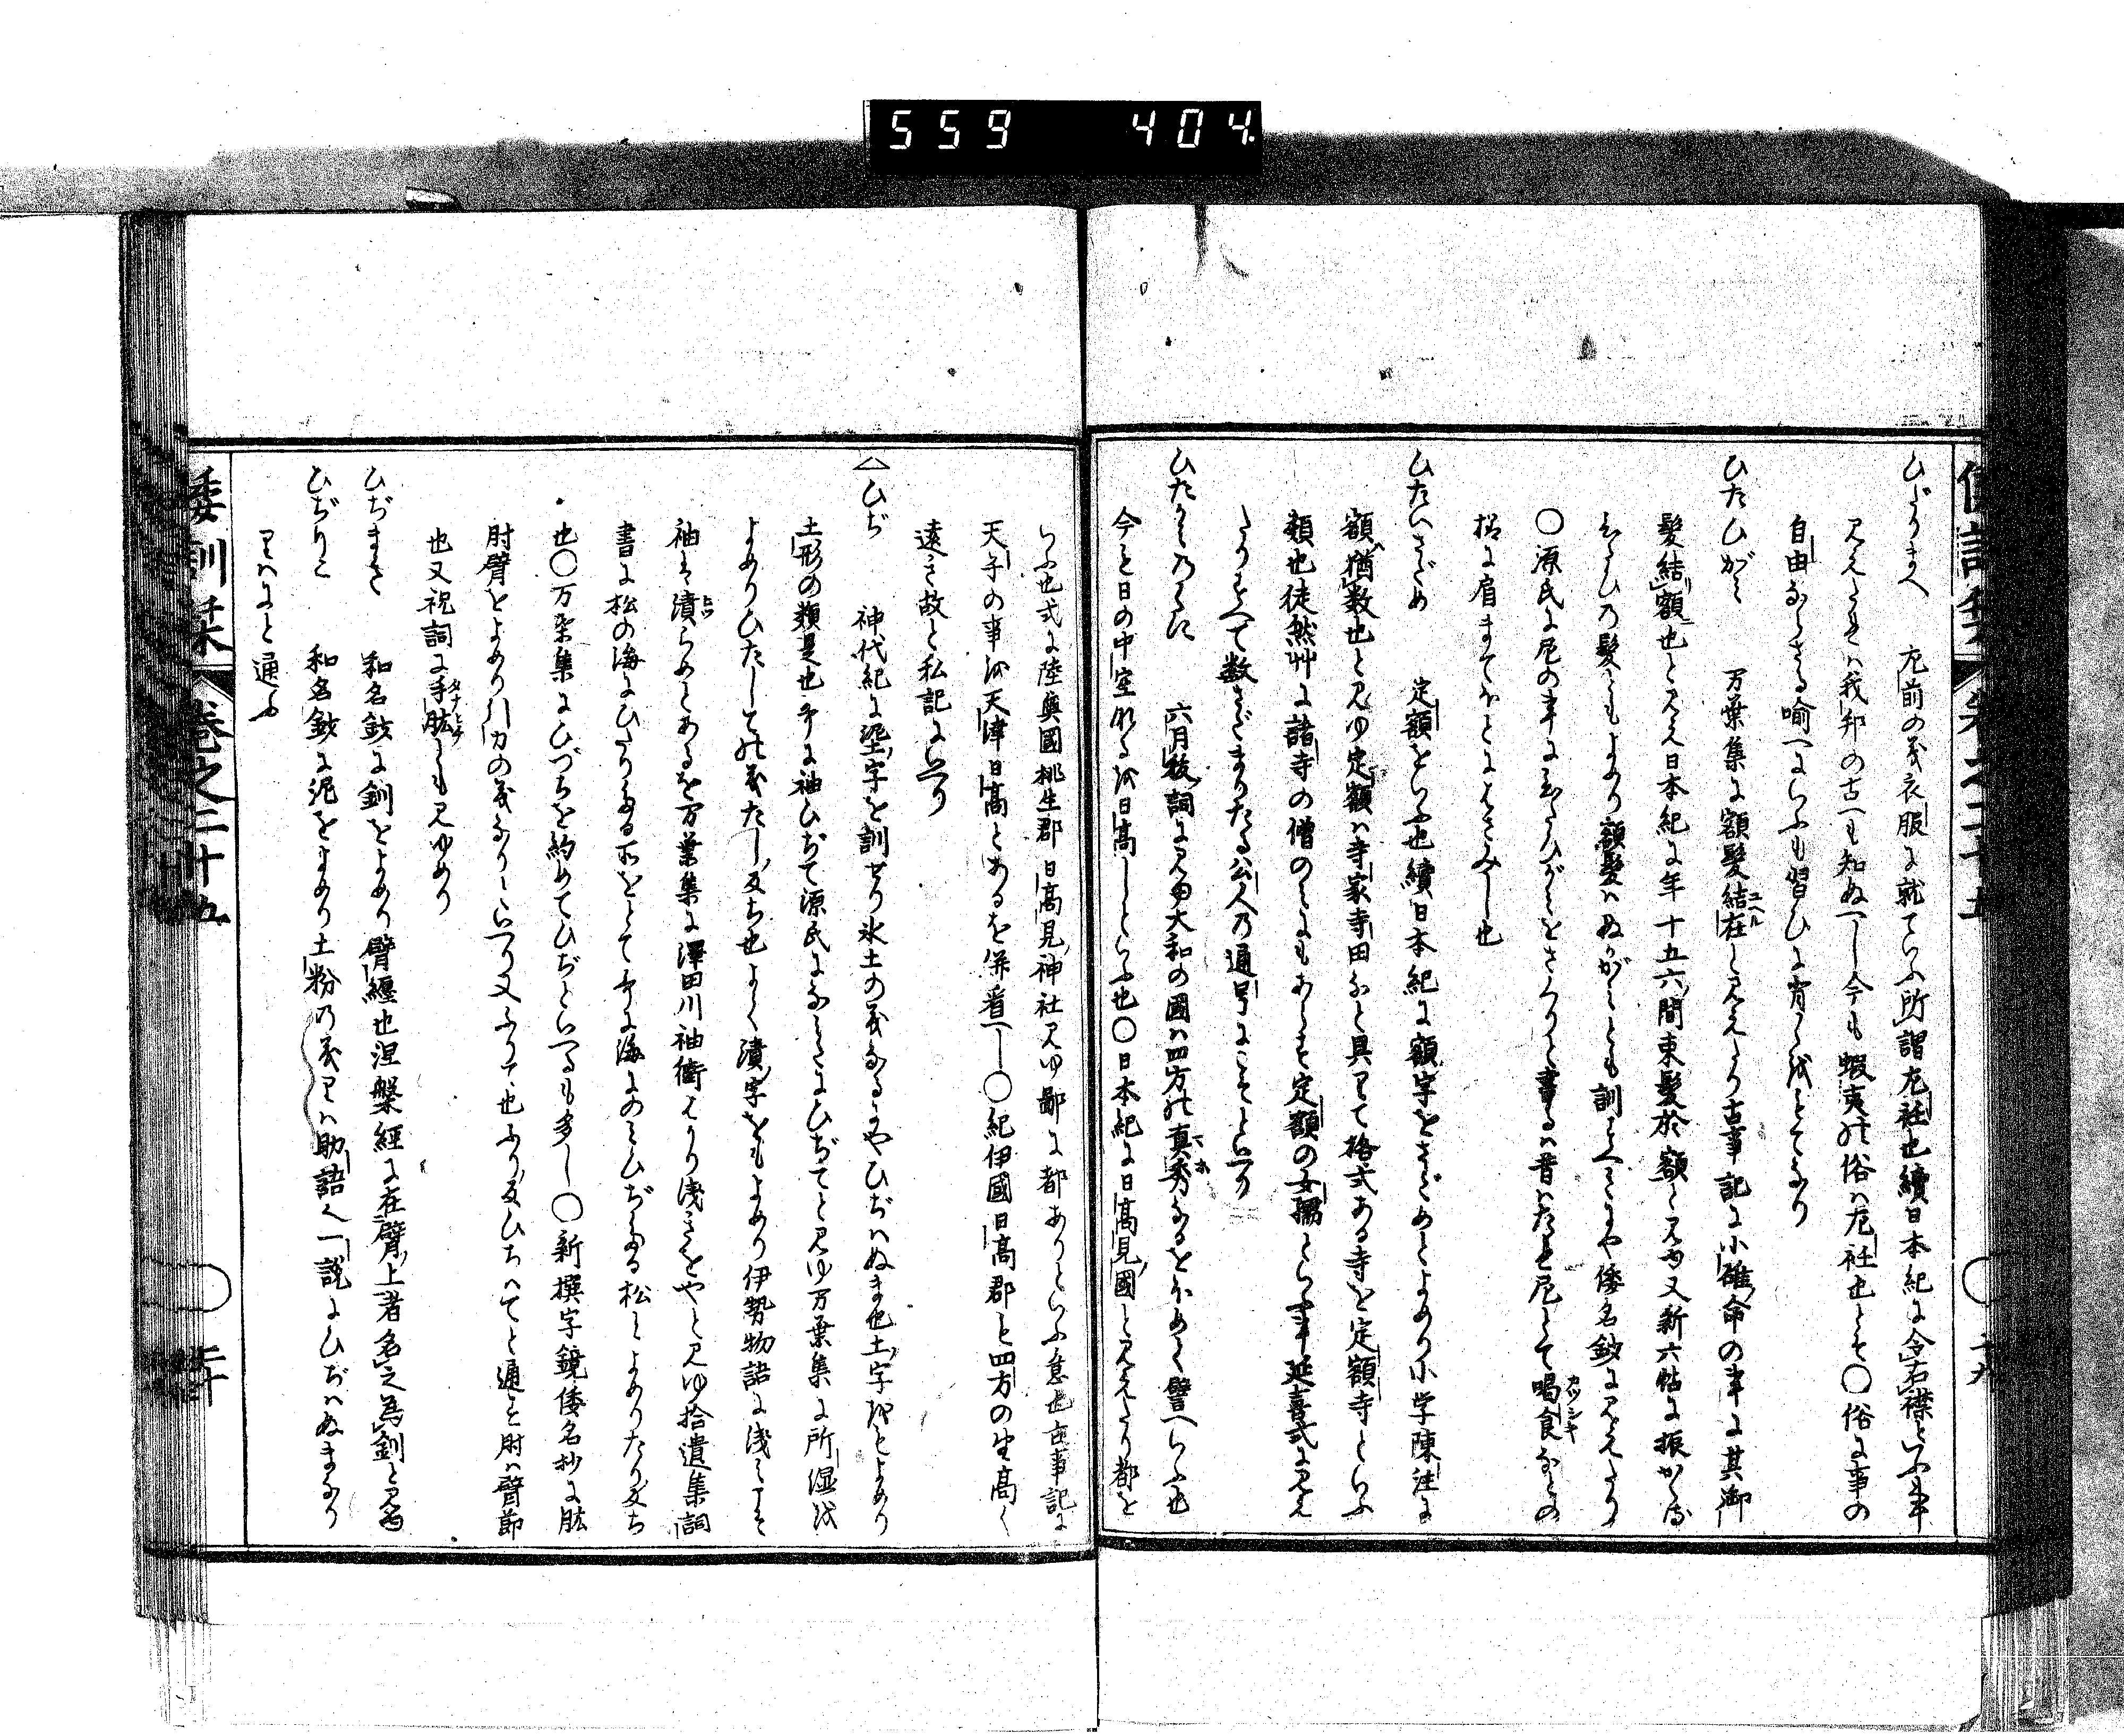 559 404
ひだりまへ 左前の義衣服に就ていふ所謂左衽也續日本紀に令右襟といふ事
見えたれは我邦の古へも知ぬへし今も蝦夷の俗は左衽也とそ〇俗に事の
自由ならさる喩へにいふも習ひに背く義とてなり
ひたひがみ 万葉集に額髪結在と見えたり古事記に小碓命の事に其御
髪結額也と見え日本紀に年十五六間束髪於額と見ゆ又新六帖に振かくる
ひたひの髪ともよめり額髪はぬかがみとも訓へきにや倭名鈔に見えたり
〇源氏に尼の事にひたひがみをさくりてと書るは昔はたれ尼とて喝食などの
樣に肩まてほとにはさみし也
ひたいさだめ 定額をいふ也續日本紀に額字をさだめとよめり小学陳註に
額猶数也と見ゆ定額は寺家寺田など具して格式ある寺を定額寺といふ
類也徒然艸に諸寺の僧のみにもあらす定額の女孺といふ事延喜式に見え
たりすへて数さだまりたる公人の通号にこそといへり
ひたかみのくに 六月祓詞に見ゆ大和の國は四方の真秀なるをほめて譬へいふ也
今も日の中空なるを日高しといふ也〇日本紀に日高見國と見えたり都を
いふ也式に陸奥國桃生郡日高見神社見ゆ鄙に都ありといふ意也古事記に
天子の事を天津日高とあるを併看へし〇紀伊國日高郡も四方の生高く
遠き故と私記にいへり
ひぢ 神代紀に埿土字を訓せり氷土の義なるにやひぢはぬま也土字をもよめり
土形の類是也歌に袖ひぢて源氏になみたにひぢてと見ゆ万葉集に所湿を
よめりひたしての義たし反ち也よく漬字をもよめり伊勢物語に浅みこそ
袖は漬らめとあるを万葉集に澤田川袖衝はかり浅きをやと見ゆ拾遺集詞
書に松の海にひたりたる所をとて歌に海にのみひぢたる松とよめりたり反ち
也〇万葉集にひづちを約めてひぢといへるも多し〇新撰字鏡倭名抄に肱
肘臂をよめり引力の義なりといへり又ふりて也ふり反ひちへてと通す肘は臂節
也又祝詞に手肱とも見ゆめり
ひぢまき 和名鈔に釧をよめり臂纏也涅槃經に在臂上者名之為釧と見ゆ
ひぢりこ 和名鈔に泥をよめり土粉の義りは助語也一説にひぢはぬまなり
りはにと通ふ
倭訓栞 巻之二十五 二十